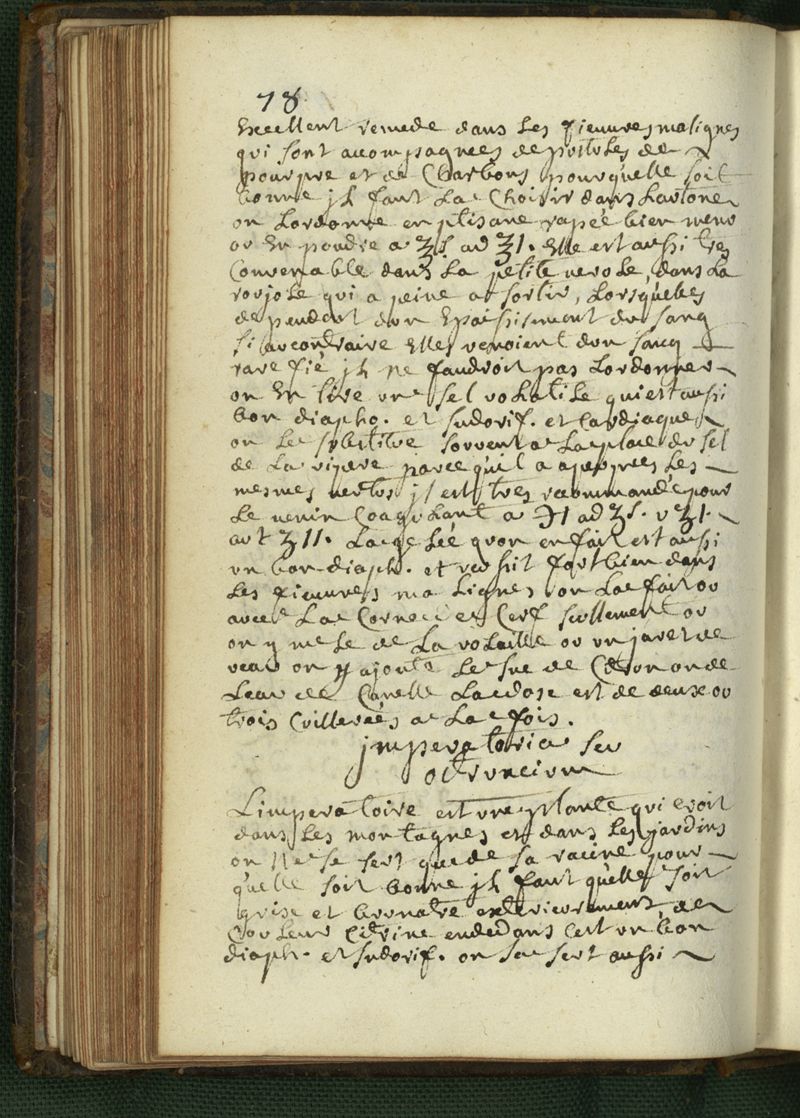 78
Excellent remede dans les fieuvres malignes
qui sont acompagnees de pustules de
pourpre et de Charbons pourquelle soit
bonne jl faut La Choisir dans Lautone
on Lordonne en ptisane rapée bien menu
ou En poudre a ʒſ ad ʒ1. Elle est aussi tres
Convenable dans La petite verole, dans La
roujole qui a peine a sortir, Lorsquelles
dependent dun Epaississement du sang
si aucontraire Elles venoient dun sang
rarefié jl ne faudroit pas Lordonner
on En tire un sel volatile qui est aussi
bon diapho. et sudorif. et Cardiaque
on Le substitue souvent a La place du sel
de La vipere parcequil a apeupres Les
mesmes vertus jl est tres recommandé pour
Le venin Coagulant a ℈1 ad ʒſ. v ʒ1.
aut ʒ11. La gelée quon en fait est aussi
un bon diaph. et reussit fort bien dans
Les fieuvres malignes on La fait ou
avec La Corne de Cerf seullement ou
on y mele de La volaille ou un jaret de
veau on y ajoute Le suc de Citron ou de
Leau de Canelle La dose est de deux ou
trois Cuillerées a La fois.
jmperatoria seu
ostruncium
Limperatoire est une plante qui croit
dans Les montagnes et dans Les jardins
on Ne se sert que de sa racine pour
quelle soit bonne jl faut quelle soit
grise et brunatre exterieurement, de
Couleur Citrine endedans Cest un bon
diaph. et sudorif. on sen sert aussi